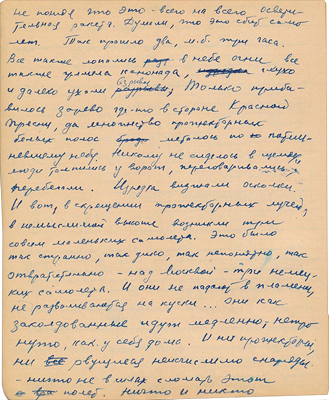 не поняв что это - всего на всего освети-
тельная ракета. Думали, что это сбит само-
лет. Так прошло два, м.б. три часа.
Все также лопались в небе огни, все
также гремела канонада, глухо
и далеко ухали взрывы, Только приба-
вилось зарево где-то в стороне Красной
Пресни, да множество прожекторных
белых полос металось по потем-
невшему небу. Никому не сиделось в щелях,
люди толпились у ворот, переговаривались,
перебегали. Изредка визжали осколки.
И вот, в скрещении прожекторных лучей,
в немыслимой высоте возникли три
совсем маленьких самолета. Это было
так странно, так дико, так непонятно, так
отвратительно - над Москвой - три немец-
ких самолета. И они не падают в пламени,
не разваливаются на куски... они как
заколдованные идут медленно, нетро-
нуто, как у себя дома. И ни прожектора,
ни рвущиеся неисчислимо снаряды
- ничто не в силах сломать этот
полет. Ничто и никто